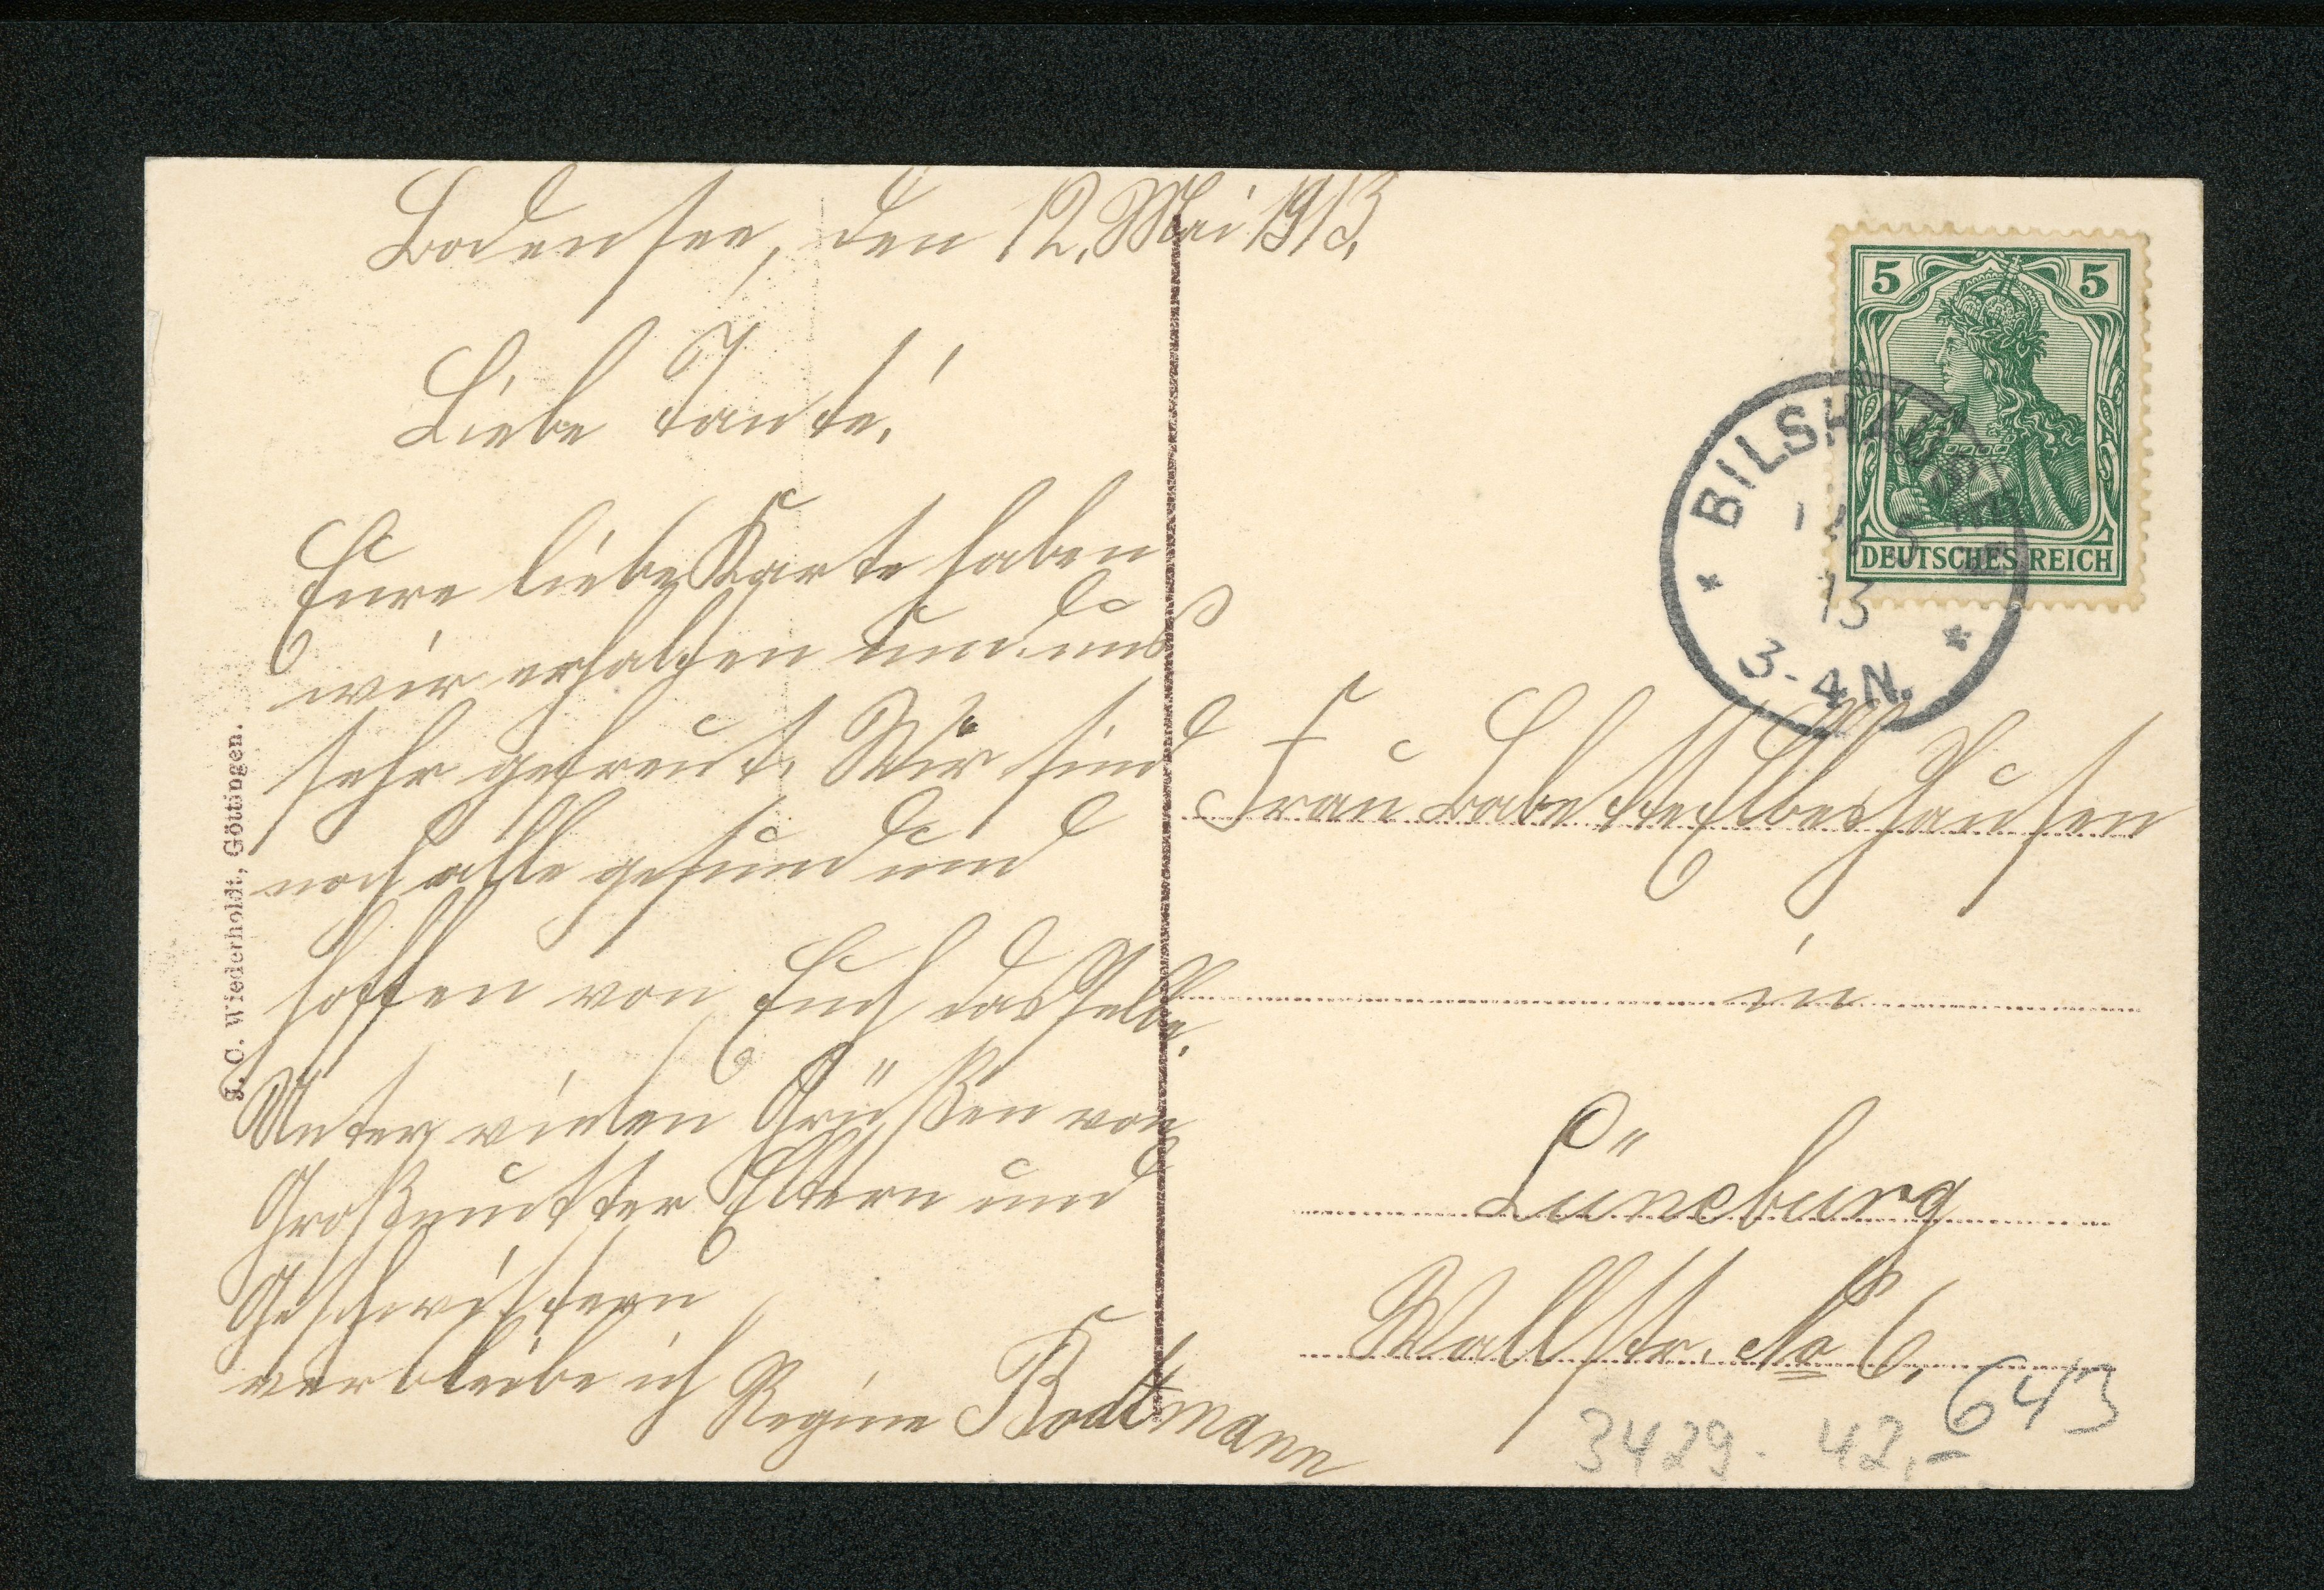 Bodensee, den 12. Mai 1913.
Liebe Tante!
Eure liebe Karte haben
wir erhalten und uns
sehr gefreut. Wir sind
noch alle gesund und
hoffen von Euch dasselbe.
Unter vielen Grüßen von
Großmutter Eltern und
Geschwistern
verbleibe ich Regine
J. C. Wiederholdt, Göttingen.
5 5
DEUTSCHES REICH
BILSHAUSEN
12 5
13
3-4 N.
Frau Babette Elbeshausen
in
Lüneburg
Wallstr. No 6.
643
3429. 42,-